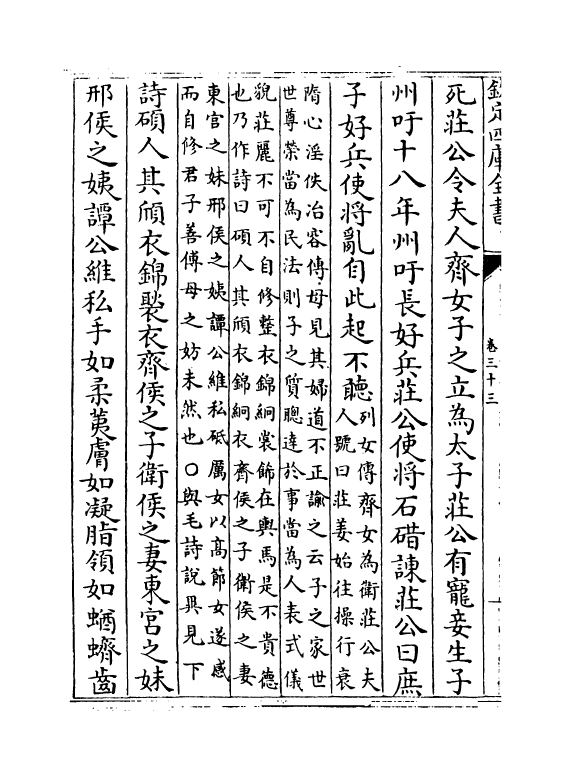 欽定四庫全書
卷三十三
死莊公令夫人齊女子之立為太子莊公有寵妾生子
州吁十八年州吁長好兵莊公使將石碏諫莊公曰庶
子好兵使將亂自此起不聽
列女傳齊女為衛莊公夫
人號曰莊姜始往操行衰
惰心淫佚冶容傅母見其婦道不正諭之云子之家世
世尊榮當為民法則子之質聰達於事當為人表式儀
貌莊麗不可不自修整衣錦絅裳飾在輿馬是不貴德
也乃作詩曰碩人其頎衣錦絅衣齊侯之子衛侯之妻
東宫之妹邢侯之姨譚公維私砥厲女以髙節女遂感
而自修君子善傅母之妨未然也○與毛詩說異見下
詩碩人其頎衣錦褧衣齊侯之子衛侯之妻東宫之妹
邢侯之姨譚公維私手如柔荑膚如凝脂領如蝤蠐齒